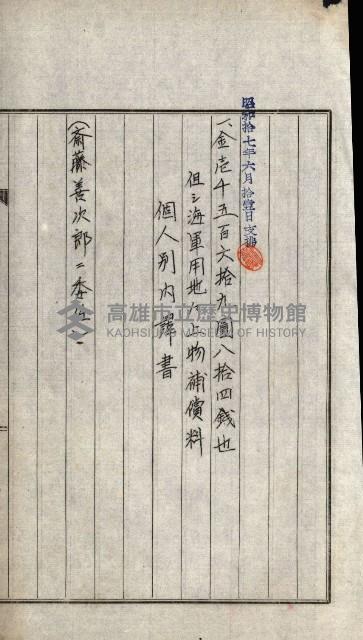 昭和拾七年六月拾壹日支拂
一、金壱千五百六拾九圓八拾四錢也
但シ海軍用地 物補償料
個人別內譯書
(斎藤善次郎ニ委
高雄市立歷史博物館
KAOHSIUNG MUSEUM OF HISTORY